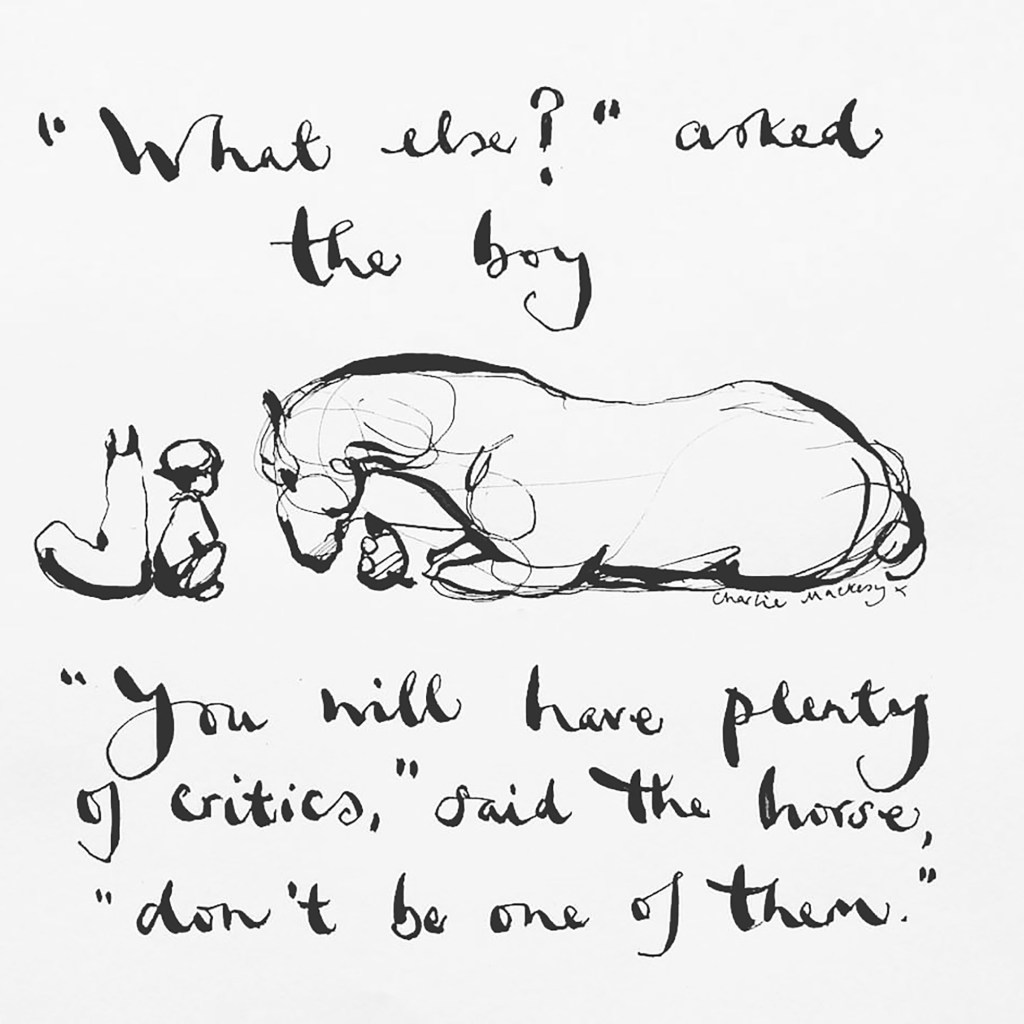 "What else?" asked
the boy
Charlie Mackesy x
"You will have plenty
of critics," said the horse,
"don't be one of them."